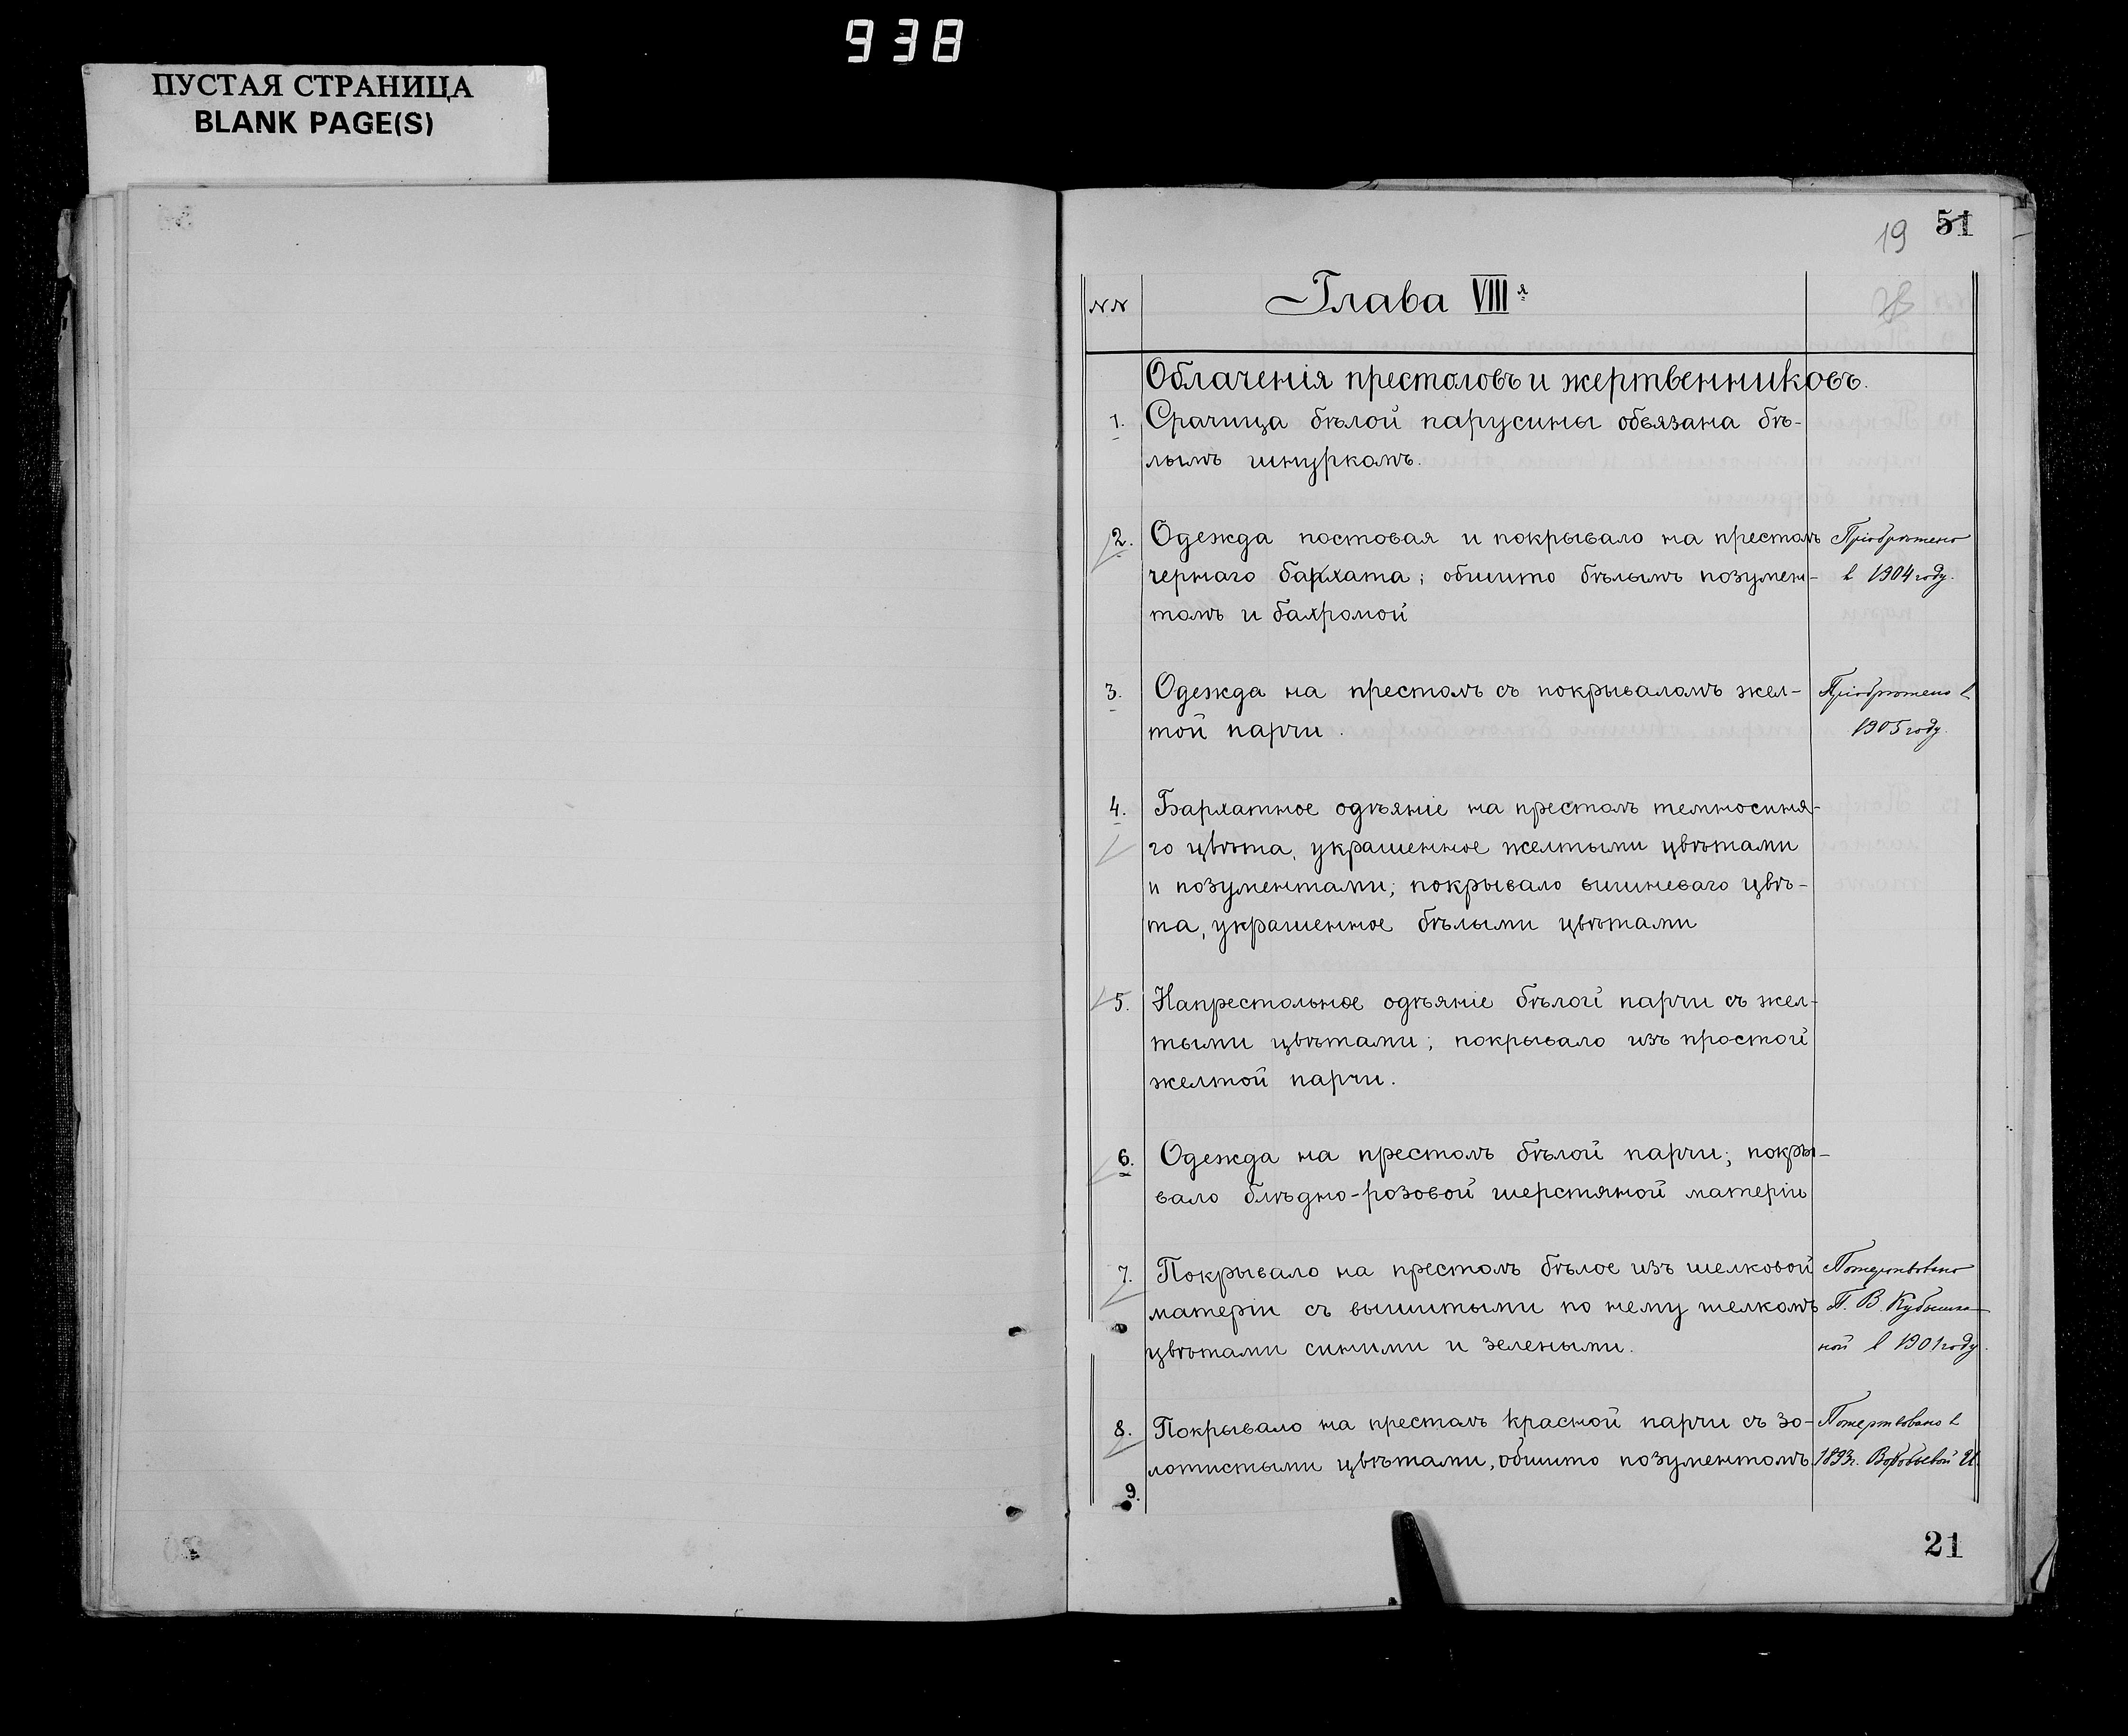 938
ПУСТАЯ СТРАНИЦА
BLANK PAGE(S)
51
19
NN
Глава VIII я
Облаченія престоловъ и жертвенниковъ.
1. Срачица бѣлой парусины обвязана бѣ-
лымъ шнуркомъ.
2. Одежда постовая и покрывало на престолъ Пріобрѣтено
чернаго бархата; обшито бѣлымъ позумен- в 1904 году.
томъ и бахромой
3. Одежда на престолъ съ покрываломъ жел- Пріобрѣтено в
той парчи. 1905 году.
4. Бархатное одѣяніе на престолъ темносиня-
го цвѣта, украшенное желтыми цвѣтами
и позументами; покрывало вишневаго цвѣ-
та, украшенное бѣлыми цвѣтами
5. Напрестольное одѣяніе бѣлой парчи съ жел-
тыми цвѣтами; покрывало изъ простой
желтой парчи.
6. Одежда на престолъ бѣлой парчи; покры-
вало блѣдно-розовой шерстяной матеріи
7. Покрывало на престолъ бѣлое изъ шелковой Пожертвовано
матеріи съ вышитыми по нему шелкомъ П. В. Кубышки-
цвѣтами синими и зелеными. ной в 1901 году.
8. Покрывало на престолъ красной парчи съ зо- Пожертвовано в
лотистыми цвѣтами, обшито позументомъ 1893 г. Воробьевой
9.
21